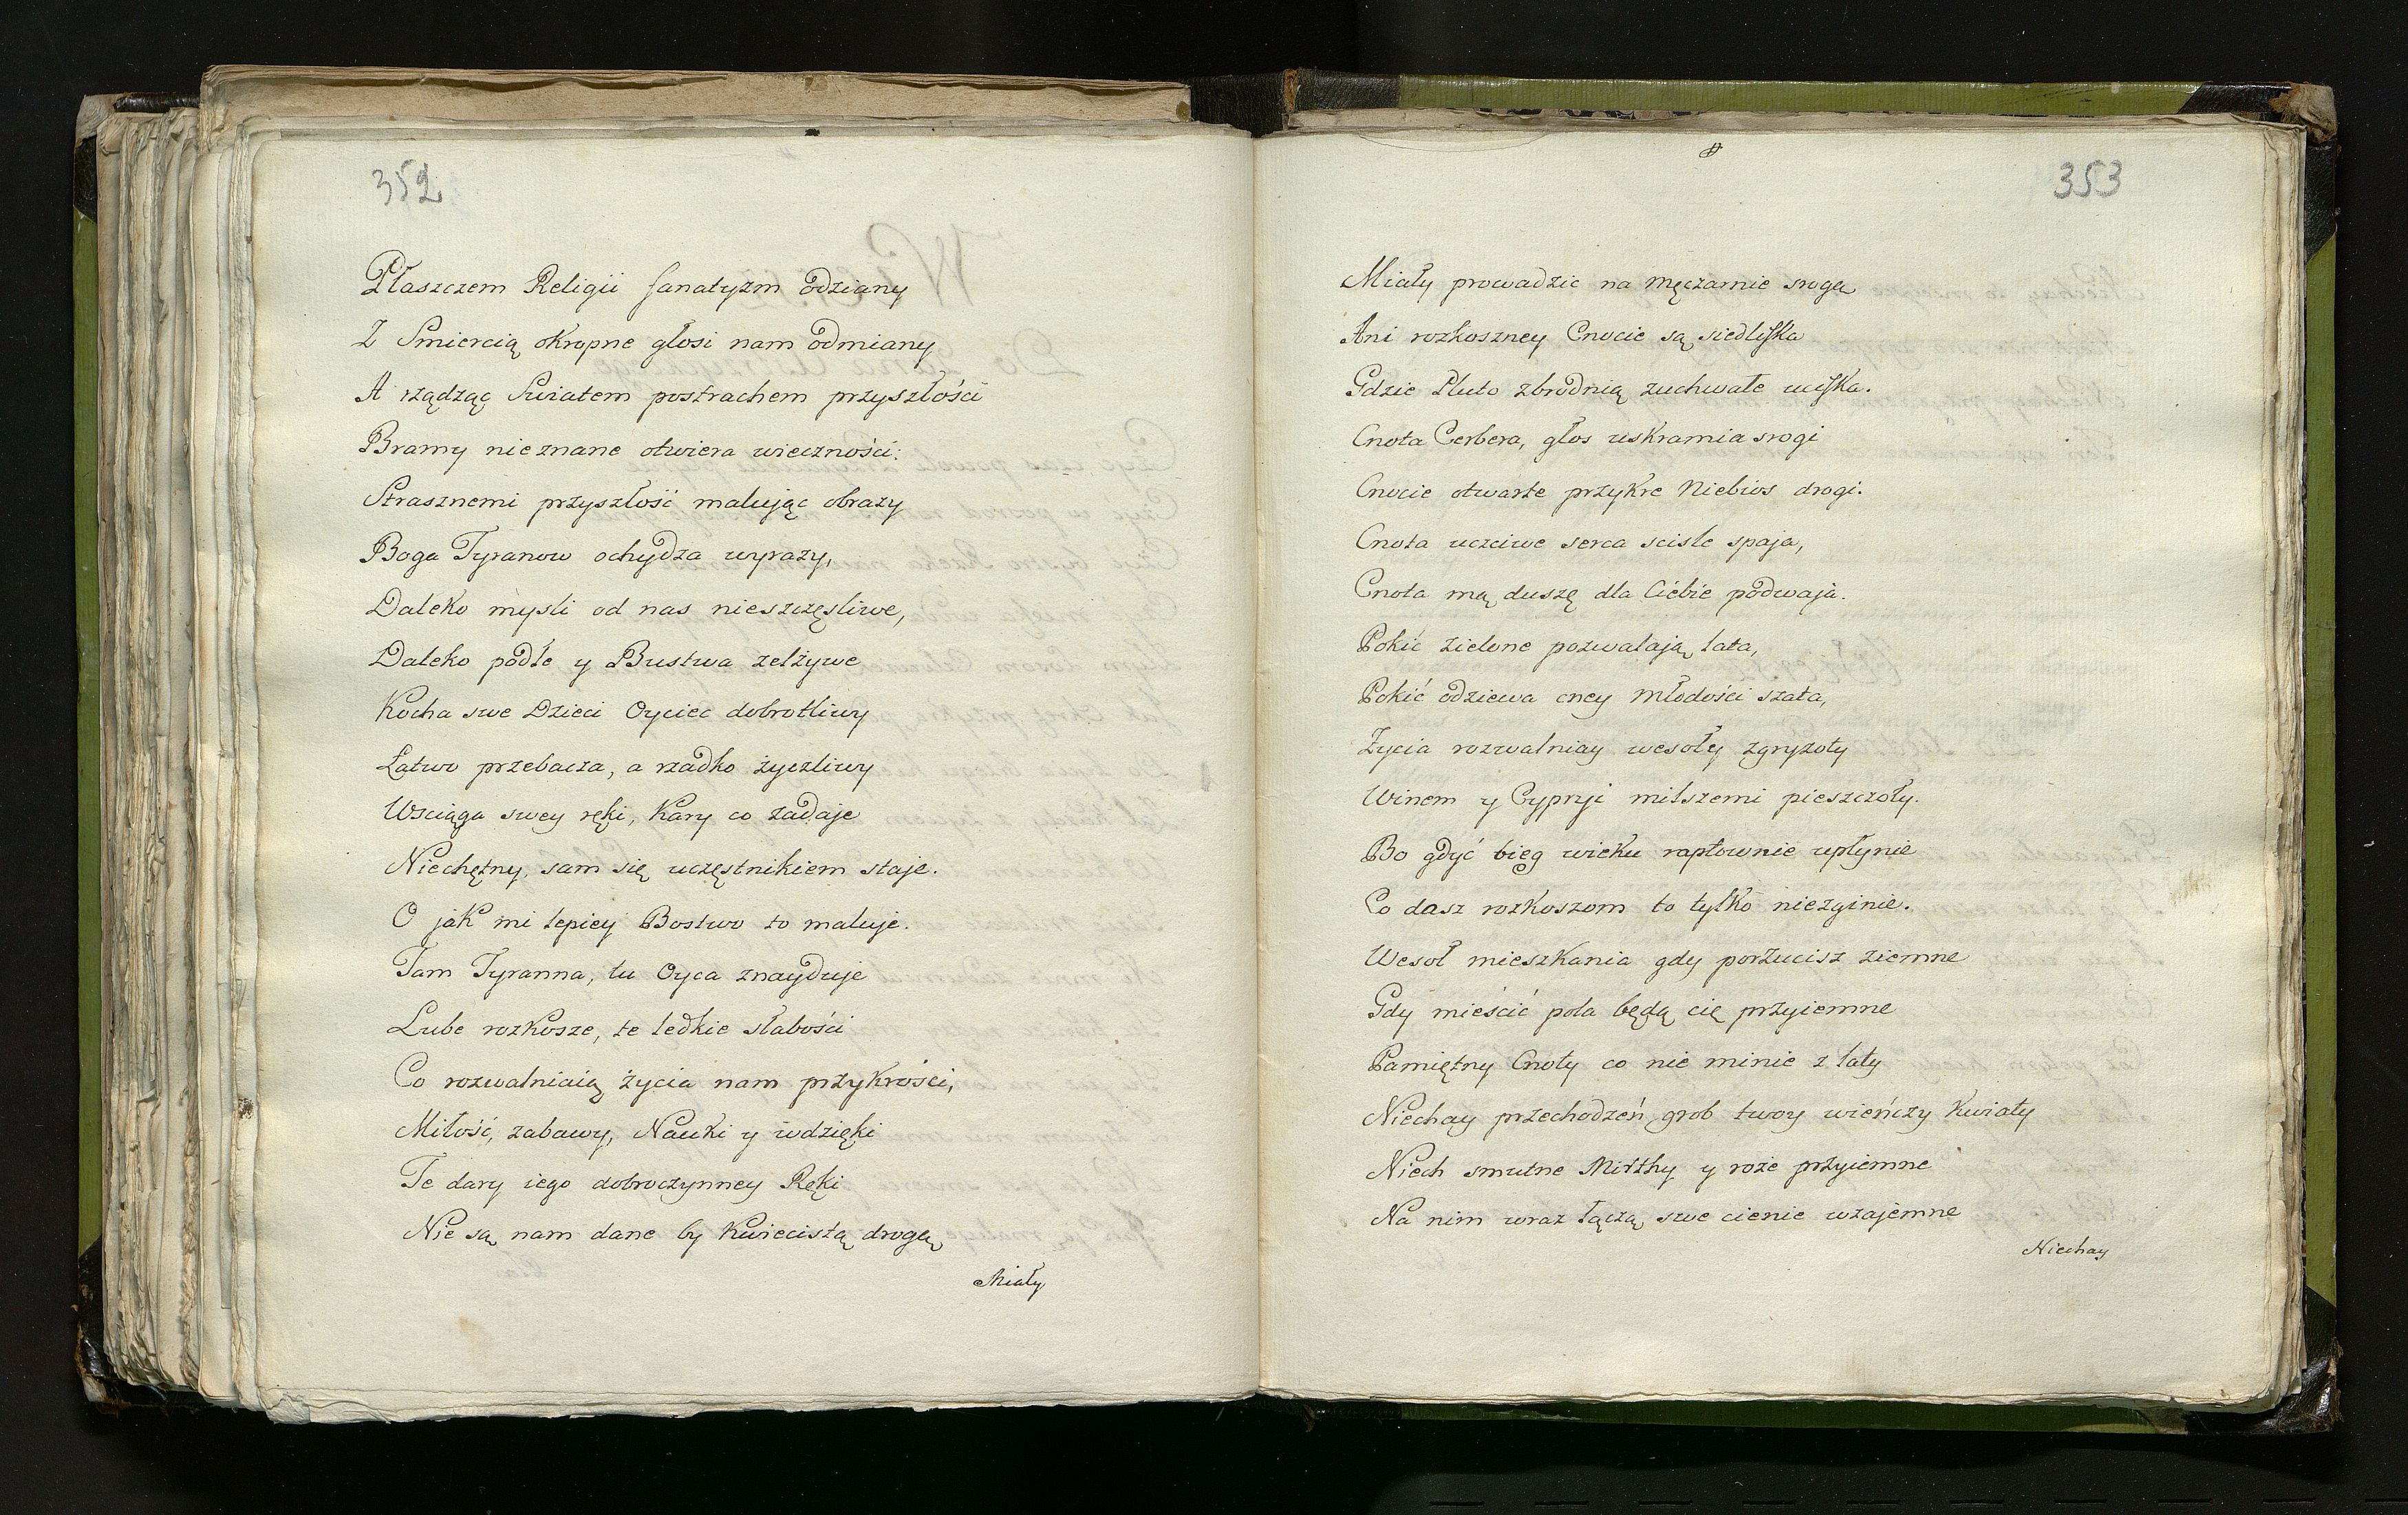 352
Płaszczem Religii fanatyzm odziany
Z Smiercią okropne głosi nam odmiany
A rządząc Swiatem postrachem przyszłości
Bramy nieznane otwiera wieczności:
Strasznemi przyszłość malując obrazy
Boga Tyranow ochydza wyrazy,
Daleko mysli od nas nieszczęsliwe,
Daleko podłe y Bustwa zelżywe
Kocha swe Dzieci Oyciec dobrotliwy
Łatwo przebacza, a rzadko życzliwy
Wsciąga swey ręki, Kary co zadaje
Niechętny, sam się uczęstnikiem staje.
O jak mi lepiey Bostwo to maluje.
Tam Tyranna, tu Oyca znayduje
Lube rozkosze, te ledkie słabości
Co rozwalniaią życia nam przykrości,
Miłość, zabawy, Nauki y wdzięki
Te dary iego dobroczynney Ręki
Nie są nam dane by Kwiecistą drogą
Miały
353
Miały prowadzic na męczarnie srogą
Ani rozkoszney Cnocie są siedliska
Gdzie Pluto zbrodnią zuchwałe uciska.
Cnota Cerbera, głos uskramia srogi
Cnocie otwarte przykre Niebios drogi.
Cnota uczciwe serca scisle spaja,
Cnota mą duszę dla Ciebie podwaja.
Pokić zielone pozwalają lata,
Pokić odziewa cney młodości szata,
Życia rozwalniay wesoły zgryzoty
Winem y Cypryi milszemi pieszczoty.
Bo gdyć bieg wieku rapłownie upłynie
Co dasz rozkoszom to tylko niezginie.
Wesoł mieszkania gdy porzucisz ziemne
Gdy mieścić pola będą cię przyiemne
Pamiętny Cnoty co nie minie z laty
Niechay przechodzeń grob twoy wieńczy Kwiaty
Niech smutne Mirthy y roże przyiemne
Na nim wraz łączą swe cienie wzajemne
Niechay